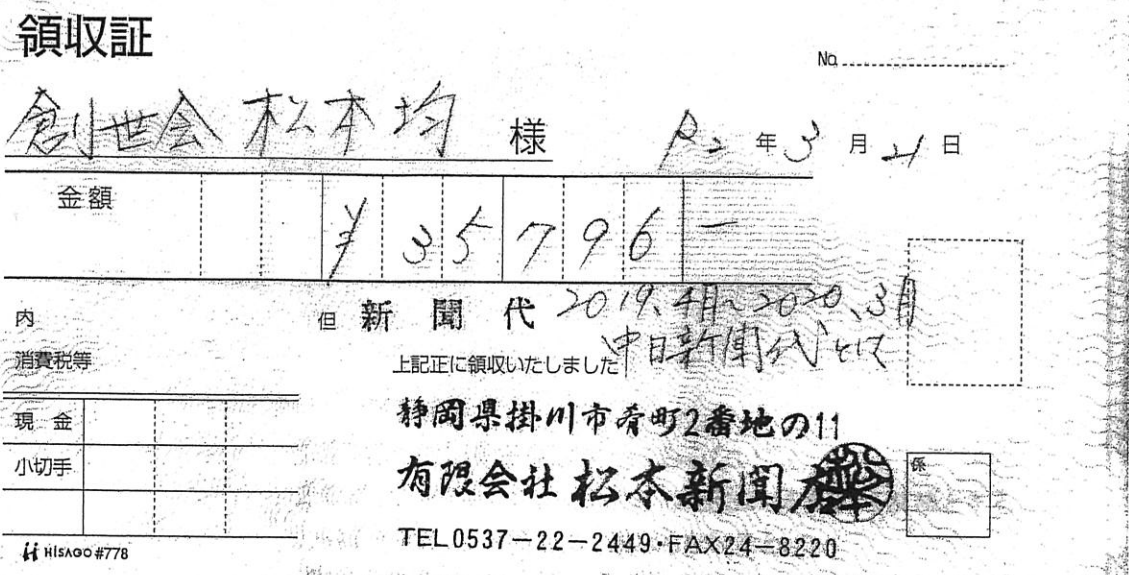 領収証
No.
創世会 松本均 様
R2 年 3 月 21 日
金額
¥35796-
内
但 新聞代 2019.4月~2020.3月
中日新聞代として
消費税等
上記正に領収いたしました
現金
静岡県掛川市肴町2番地の11
小切手
有限会社 松本新聞店
係
TEL0537-22-2449・FAX24-8220
HISAGO #778